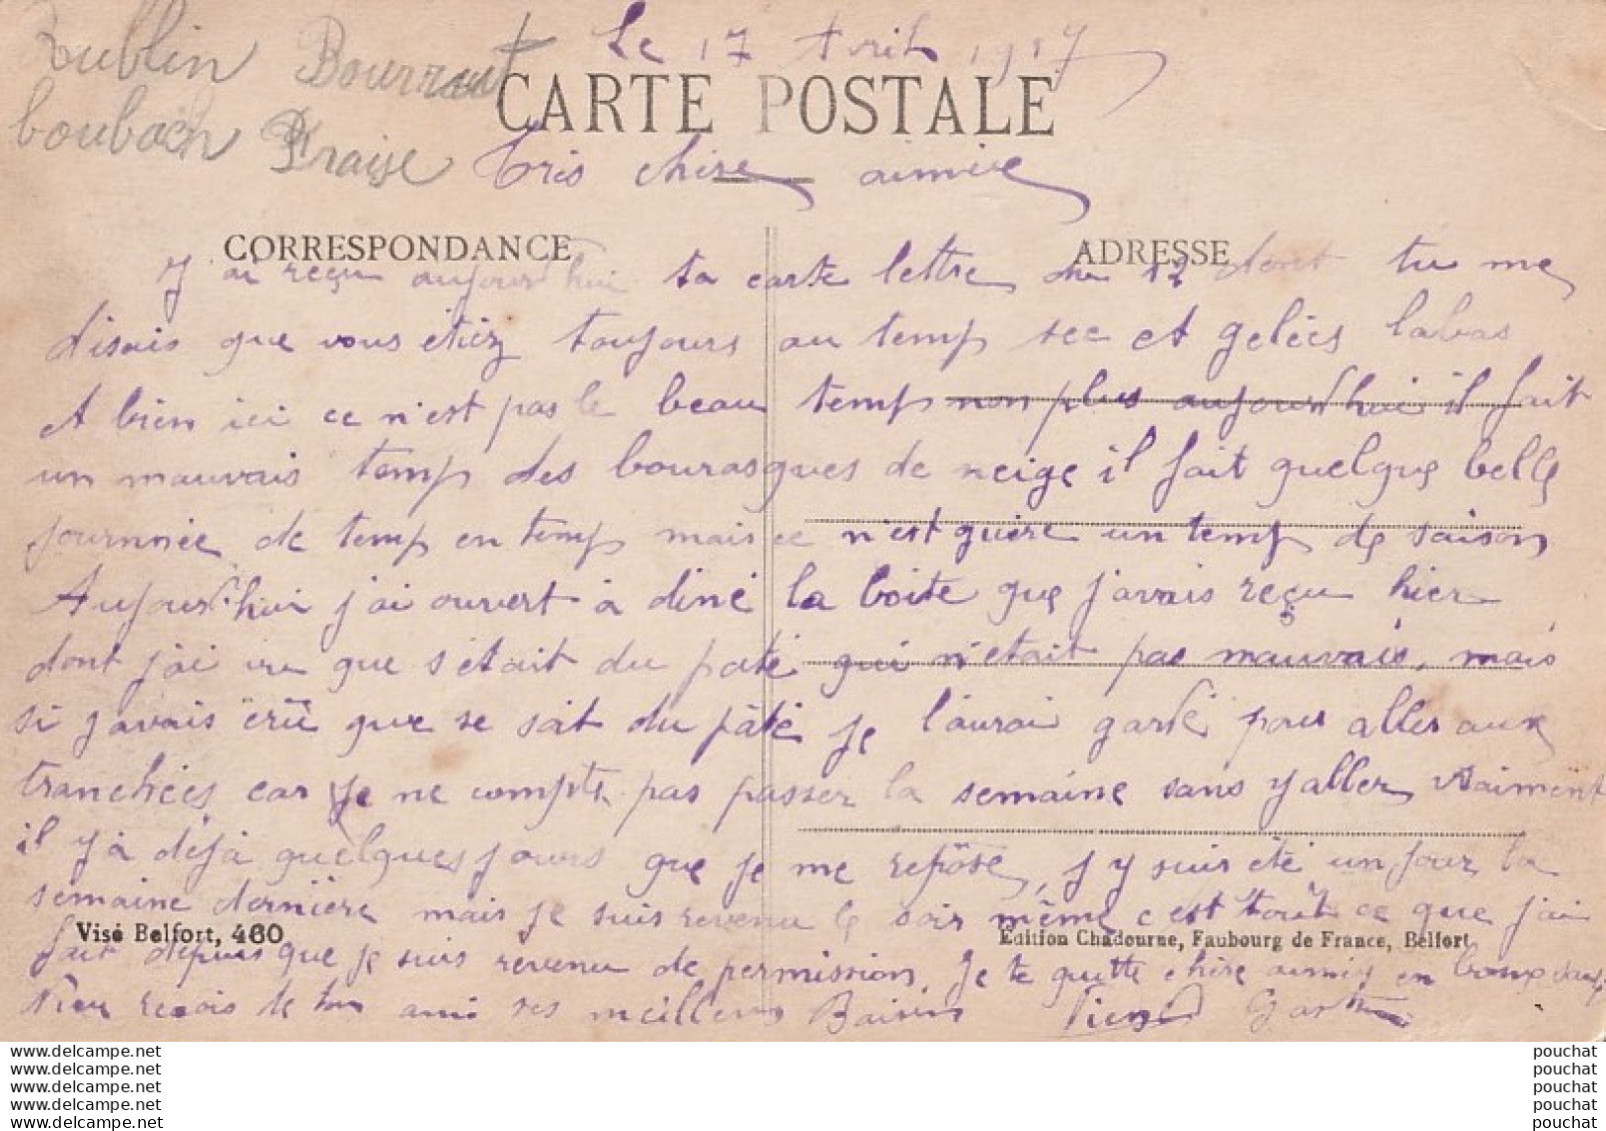 Le 17 Avril 1917
Zublin Bourraut
CARTE POSTALE
boubach Fraise
Tris chire aimie
CORRESPONDANCE
ADRESSE
J ai reçu aujourd'hui ta carte lettre du 12 dont tu me
disais que vous étiez toujours au temp sec et gelées labas
et bien ici ce n'est pas le beau temp non plus aujourd'hui il fait
un mauvais temp des bourasques de neige il fait quelque belle
journnée de temp en temp mais ce n'est guire un temp de saison
Aujourd'hui j'ai ouvert à diné la boite que j'avais reçu hier
dont j'ai vu que s'etait du paté qui n'etait pas mauvais, mais
si j'avais crû que se soit du pâté je l'aurai gardé pour aller aux
tranchées car je ne compte pas passer la semaine sans y aller vraiment
il y à déjà quelques jours que je me repose, j y suis été un jour la
semaine derniere mais je suis revenu le soir même c'est tout ce que j'ai
Visé Belfort, 460
Édition Chadourne, Faubourg de France, Belfort
fait depuis que je suis revenu de permission, Je te quitte chire aimie en bonne santé
recois de ton ami ses meilleurs Baisers
www.delcampe.net
www.delcampe.net
www.delcampe.net
www.delcampe.net
www.delcampe.net
pouchat
pouchat
pouchat
pouchat
pouchat